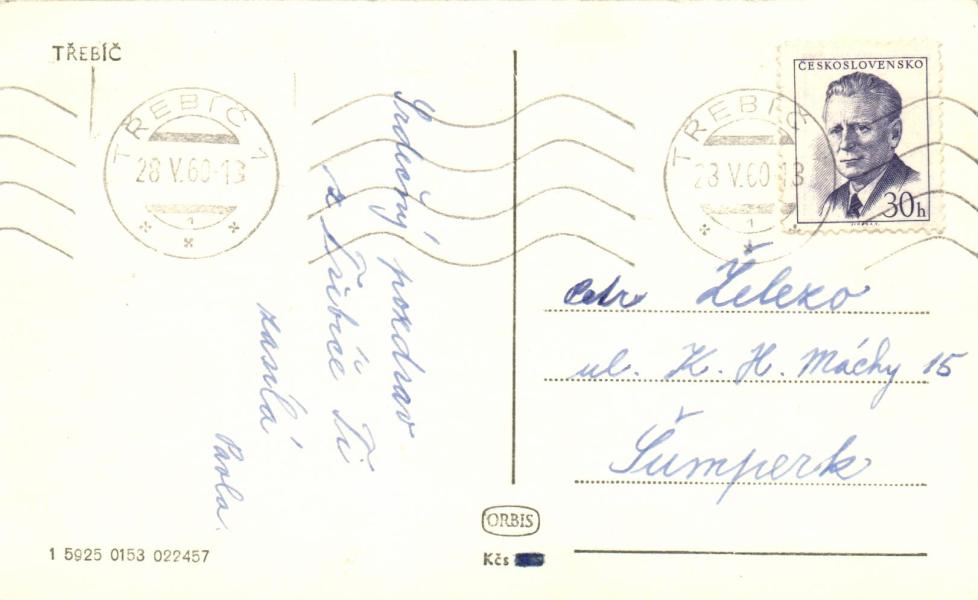 TŘEBÍČ
TŘEBÍČ 1
28 V.60-13
1
Srdečný pozdrav
z Třebíče Ti
zasílá
Pavla.
1 5925 0153 022457
ORBIS
Kčs
TŘEBÍČ
28 V.60-13
1
ČESKOSLOVENSKO
30h
Petr Železo
ul. K. H. Máchy 15
Šumperk